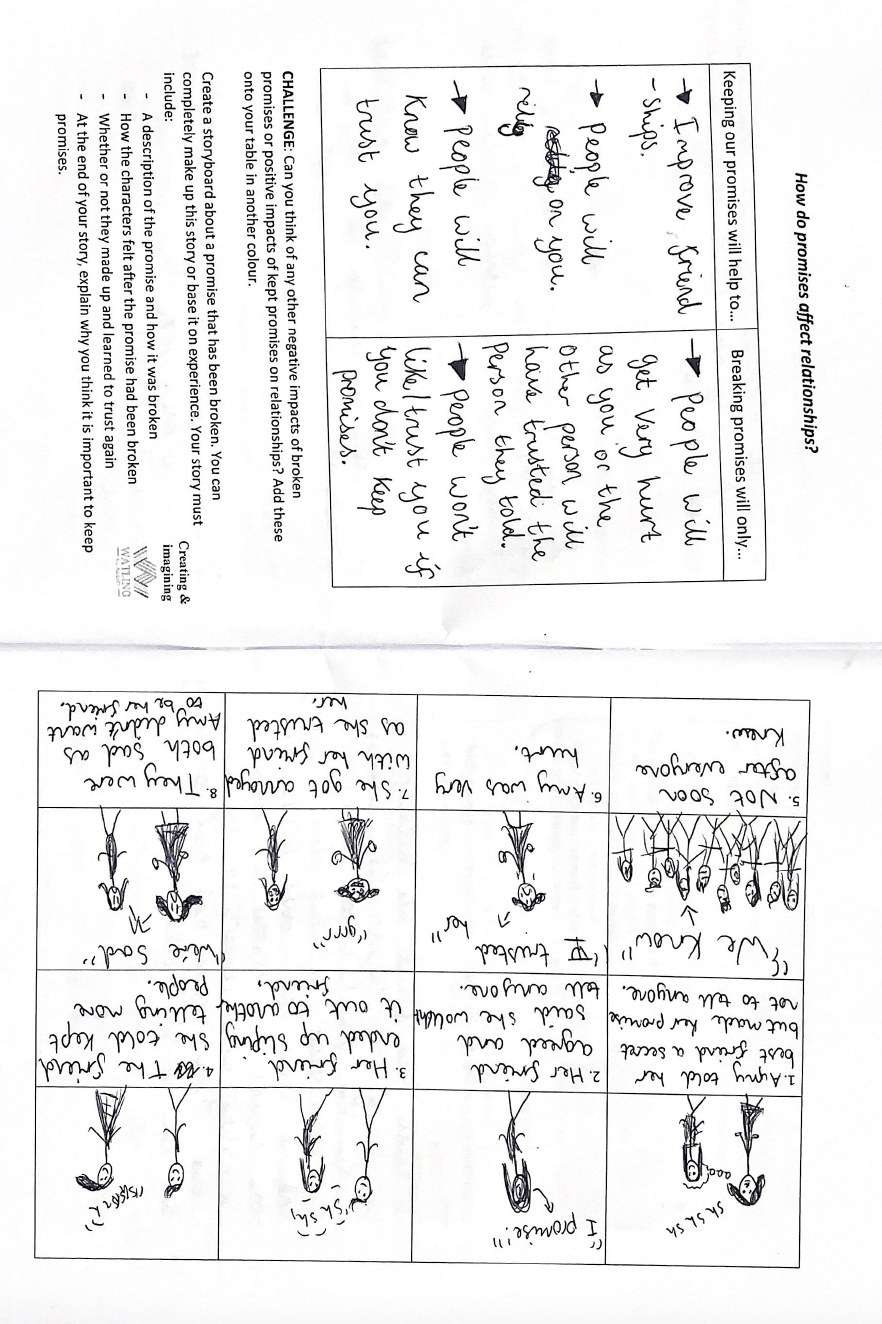 How do promises affect relationships?
Keeping our promises will help to...
→ Improve friend
- ships.
→ People will
rely on you.
→ People will
Know they can
trust you.
Breaking promises will only...
→ People will
get very hurt
as you or the
other person will
have trusted the
Person they told.
→ People won't
like/trust you if
you don't keep
promises.
CHALLENGE: Can you think of any other negative impacts of broken
promises or positive impacts of kept promises on relationships? Add these
onto your table in another colour.
Create a storyboard about a promise that has been broken. You can
completely make up this story or base it on experience. Your story must
include:
- A description of the promise and how it was broken
- How the characters felt after the promise had been broken
- Whether or not they made up and learned to trust again
- At the end of your story, explain why you think it is important to keep
promises.
Creating &
imagining
WATLING
sh sh sh
ooo
1. Aymy told her
best friend a secret
but made her promise
not to tell anyone.
"I promise!"
2. Her friend
agreed and
said she wouldn't
tell anyone.
"Sh sh"
3. Her friend
ended up sliping
it out to another
friend.
4. The friend
she told kept
telling more
People.
"We Know"
5. Not soon
after everyone
Knew.
"I trusted
her"
6. Amy was very
hurt.
"grr"
7. She got annoyed
with her friend
as she trusted
her.
"We're Sad"
8. They were
both sad as
Amy didn't want
to be her friend.